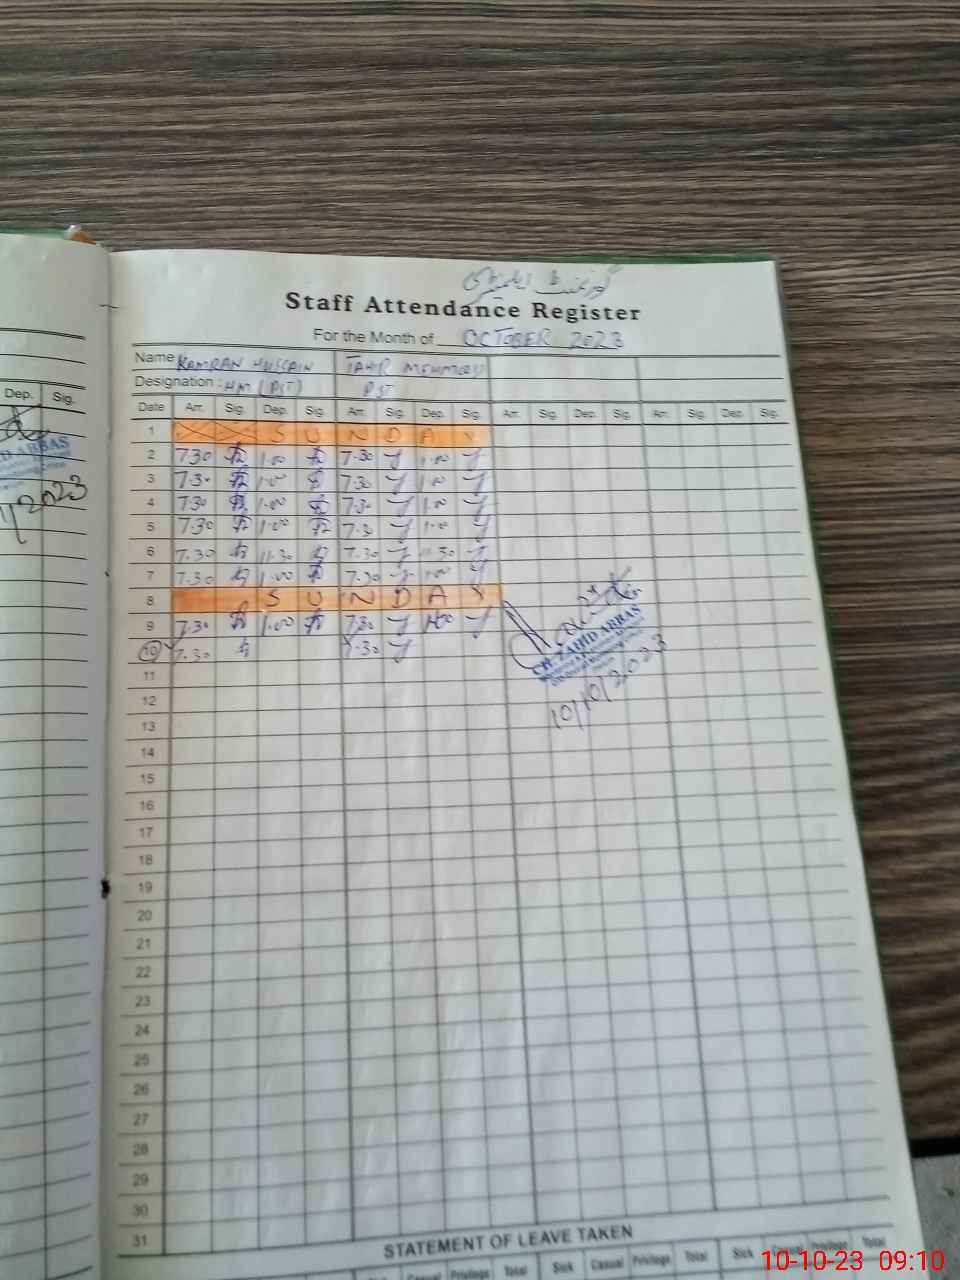 گورنمنٹ ایلیمنٹری
Staff Attendance Register
For the Month of OCTOBER 2023
Name KAMRAN HUSSAIN TAHIR MEHMOOD
Designation : HM (PST) PST
Dep. Sig.
Date Arr. Sig. Dep. Sig. Arr. Sig. Dep. Sig. Arr. Sig. Dep. Sig. Arr. Sig. Dep. Sig.
1 S U N D A Y
2 7.30 1.00 7.30 1.00
3 7.30 1.00 7.30 1.00
4 7.30 1.00 7.30 1.00
5 7.30 1.00 7.30 1.00
6 7.30 11.30 7.30 11.30
7 7.30 1.00 7.30 1.00
8 S U N D A Y
9 7.30 1.00 7.30 1.00
10 7.30 7.30
CH. ZAHID ABBAS
10/10/2023
11
12
13
14
15
16
17
18
19
20
21
22
23
24
25
26
27
28
29
30
31
STATEMENT OF LEAVE TAKEN
Sick Casual Privilege Total Sick Casual Privilege Total Sick Casual Privilege Total
10-10-23 09:10